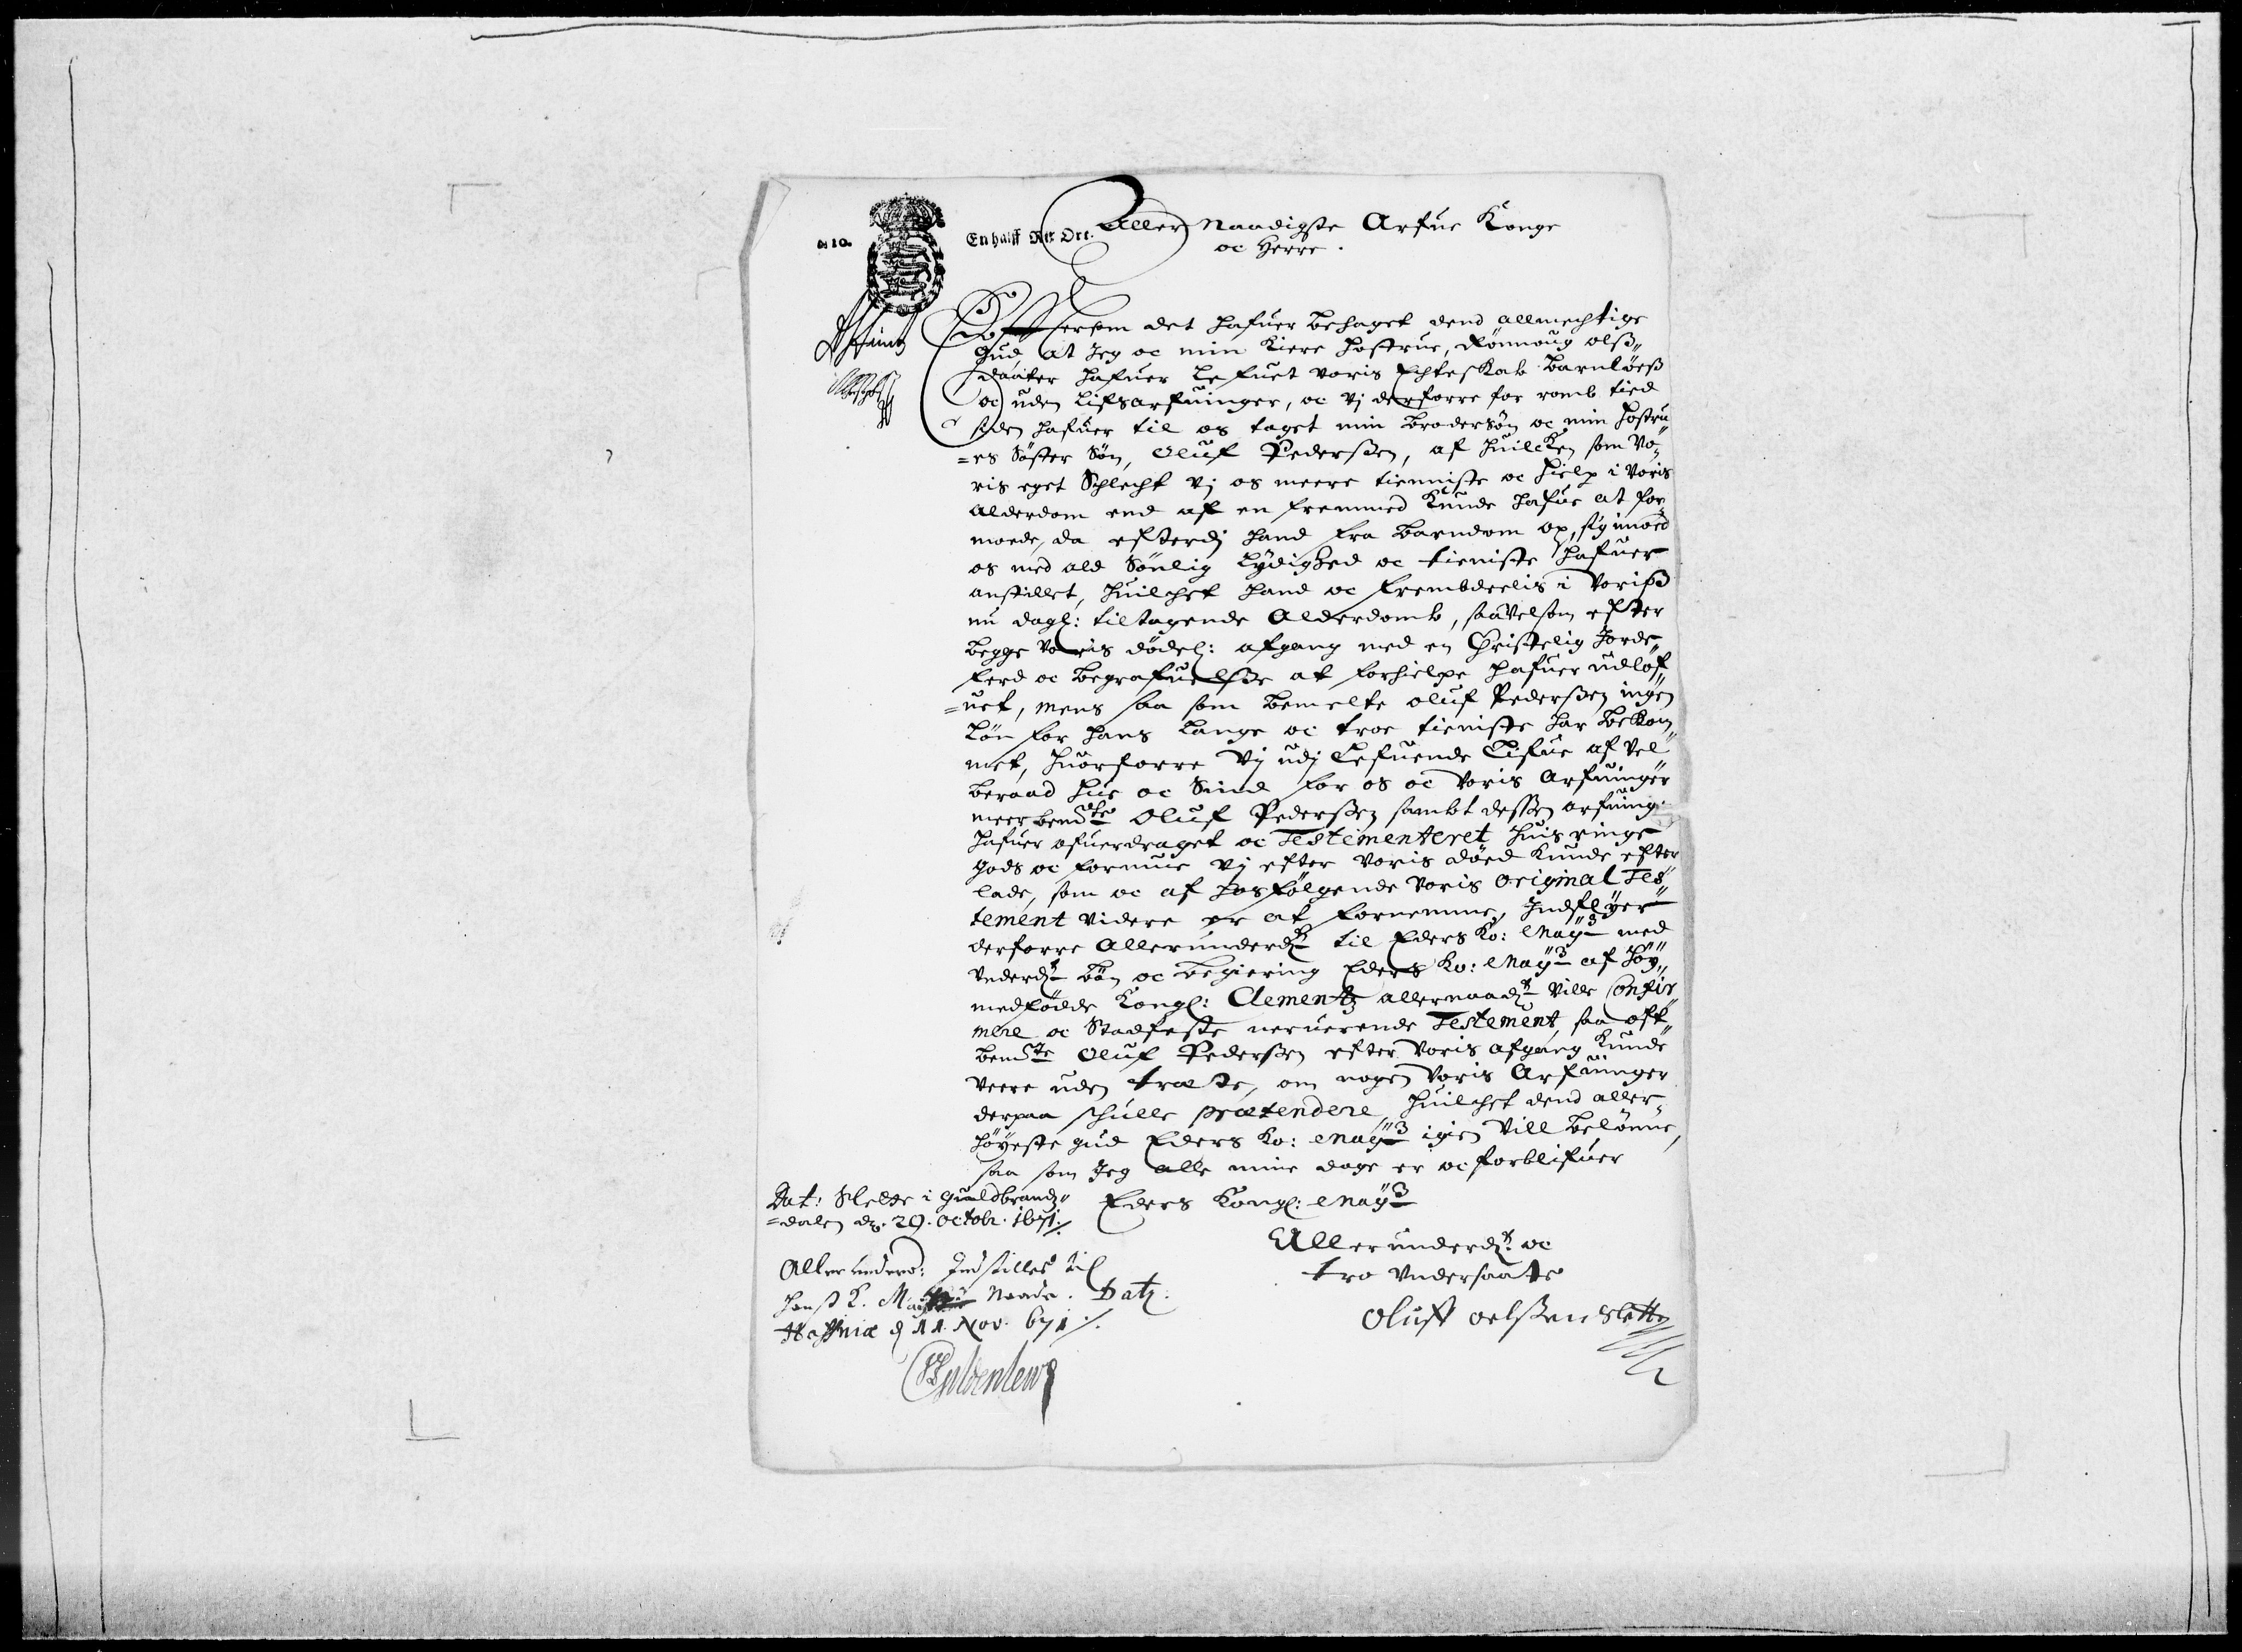 N 10. En halff Rix Ort.
Aller Naadigste Arfue Konge
oc Herre.
Eftersom det hafuer behaget dend allmechtige
Gud, at Jeg oc min kiere hostrue, Rönnoug olß„
daater hafuer lefuet voris Echteskab barnlöeß
oc uden lifsarfuinger, oc vj derforre for romb tied
siden hafuer til os taget min brodersön oc min hostru„
=es Söster Sön, Oluf Pederßen, af huilcken som vo„
ris eget Schlecht vj os meere tienniste oc hielp i voris
alderdom end af en fremmed kunde hafue at for„
moede, da efterdj hand fra barndom op, sig imoed
os med ald Sönlig lydighed oc tieniste hafuer
anstillet, huilchet hand oc frembdeelis i voriß
nu dagl: tiltagende Alderdomb, saavelsom efter
begge voris dödel: afgang med en Christelig Jorde„
ferd oc begrafuelße at forhielpe hafuer udlof„
=uet, mens saa som bemelte oluf Pederßen ingen
lön for hans lange oc troe tieniste har bekom„
met, huorforre vj udj lefuende lifue af vel
beraad hue oc Sind for os oc voris Arfuinger
meerbemte Oluf Pederßen sambt dessen arfuing:
hafuer ofuerdraget oc Testementeret huis ringe
gods oc formue vj efter voris döed kunde efter
lade, som oc af hosfölgende voris original Tes„
tement videre er at fornemme, Indflyer
derforre Allerunderdt til Eders Ko: Mayt med
underdt bön oc begiering Eders Ko: Mayt af höy„
medfödde Kongl: Clementz allernaadt ville Confir„
mere oc Stadfeste nerverende Testement, saa oft„
bemte Oluf Pederßen efter voris afgang kunde
veere uden trætte, om nogen voris Arfuinger
derpaa schulle prætendere, huilchet dend aller„
höyeste gud Eders Ko: Mayt igien vill belönne,
saa som Jeg alle mine dage er oc forblifuer
Dat: Slette i Guuldbrandz„
=dalen d. 29. octobr. 1671.
Eders Kongl: Mayt
Allerunderdt oc
tro Undersaatte
Oluff oelßen Slette
Allerunderd: Indstilles til
Hanß K. Mayt Naade. Datz.
Haffniæ d 11. Nov. 671.
Guldenlew